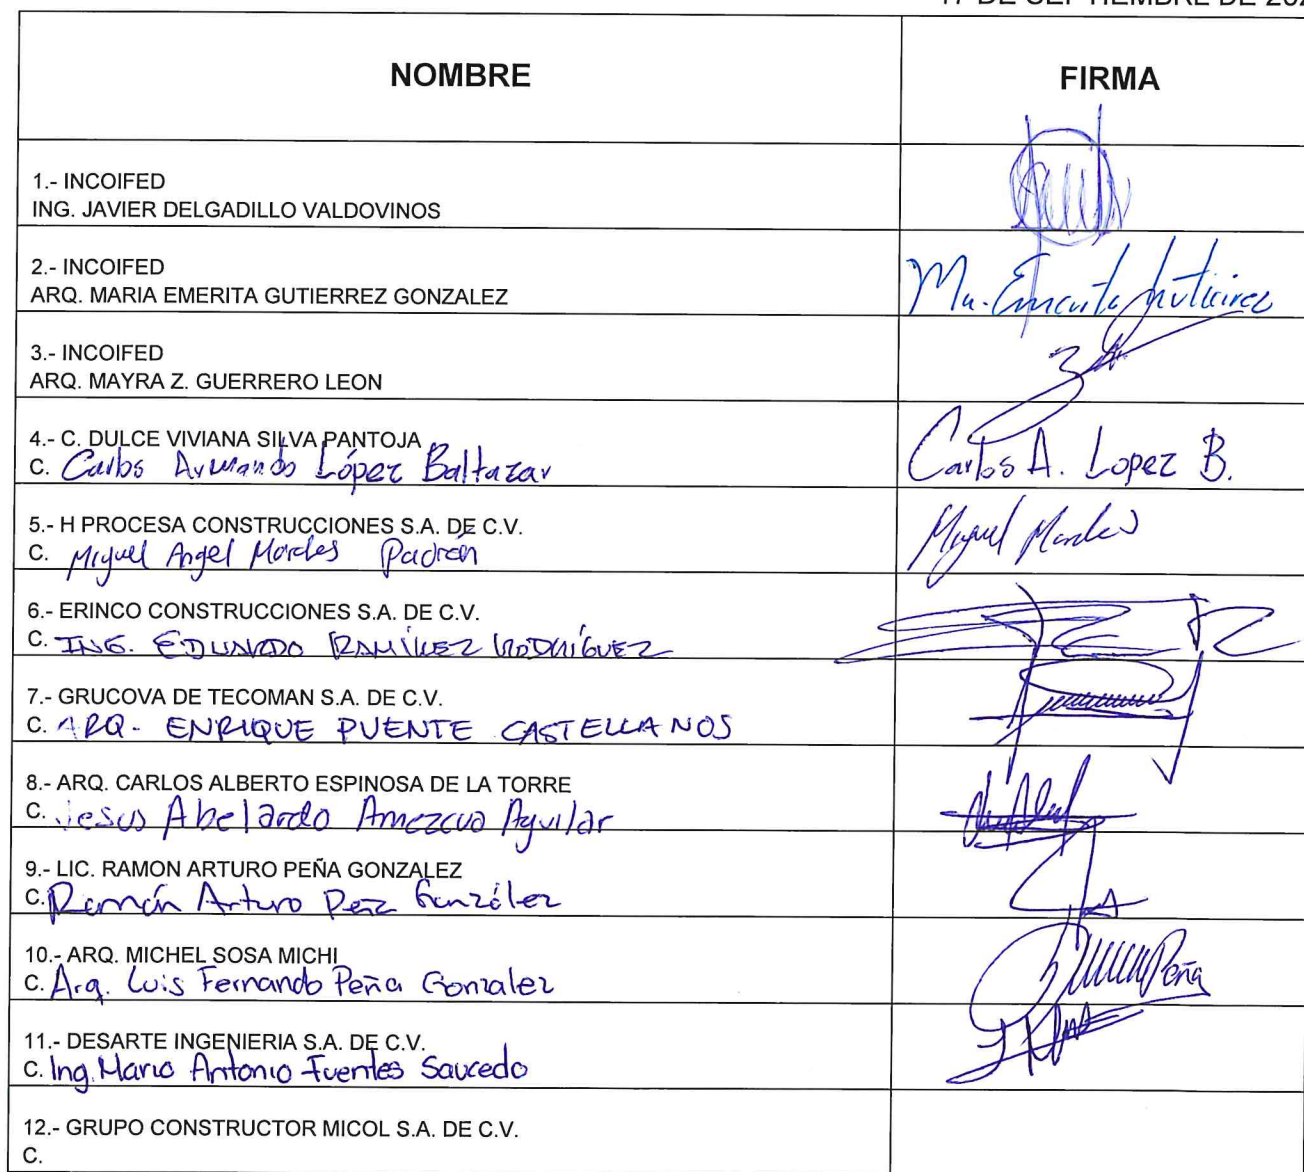 17 DE SEPTIEMBRE DE 202
NOMBRE
FIRMA
1.- INCOIFED
ING. JAVIER DELGADILLO VALDOVINOS
2.- INCOIFED
ARQ. MARIA EMERITA GUTIERREZ GONZALEZ
Ma. Emerita Gutierrez
3.- INCOIFED
ARQ. MAYRA Z. GUERRERO LEON
4.- C. DULCE VIVIANA SILVA PANTOJA
C. Carlos Armando López Baltazar
Carlos A. Lopez B.
5.- H PROCESA CONSTRUCCIONES S.A. DE C.V.
C. Miguel Angel Morales Padrón
Miguel Morales
6.- ERINCO CONSTRUCCIONES S.A. DE C.V.
C. ING. EDUARDO RAMÍREZ RODRÍGUEZ
7.- GRUCOVA DE TECOMAN S.A. DE C.V.
C. ARQ. ENRIQUE PUENTE CASTELLANOS
8.- ARQ. CARLOS ALBERTO ESPINOSA DE LA TORRE
C. Jesus Abelardo Amezcua Aguilar
9.- LIC. RAMON ARTURO PEÑA GONZALEZ
C. Ramón Arturo Peña González
10.- ARQ. MICHEL SOSA MICHI
C. Arq. Luis Fernando Peña Gonzalez
Peña
11.- DESARTE INGENIERIA S.A. DE C.V.
C. Ing. Mario Antonio Fuentes Saucedo
12.- GRUPO CONSTRUCTOR MICOL S.A. DE C.V.
C.